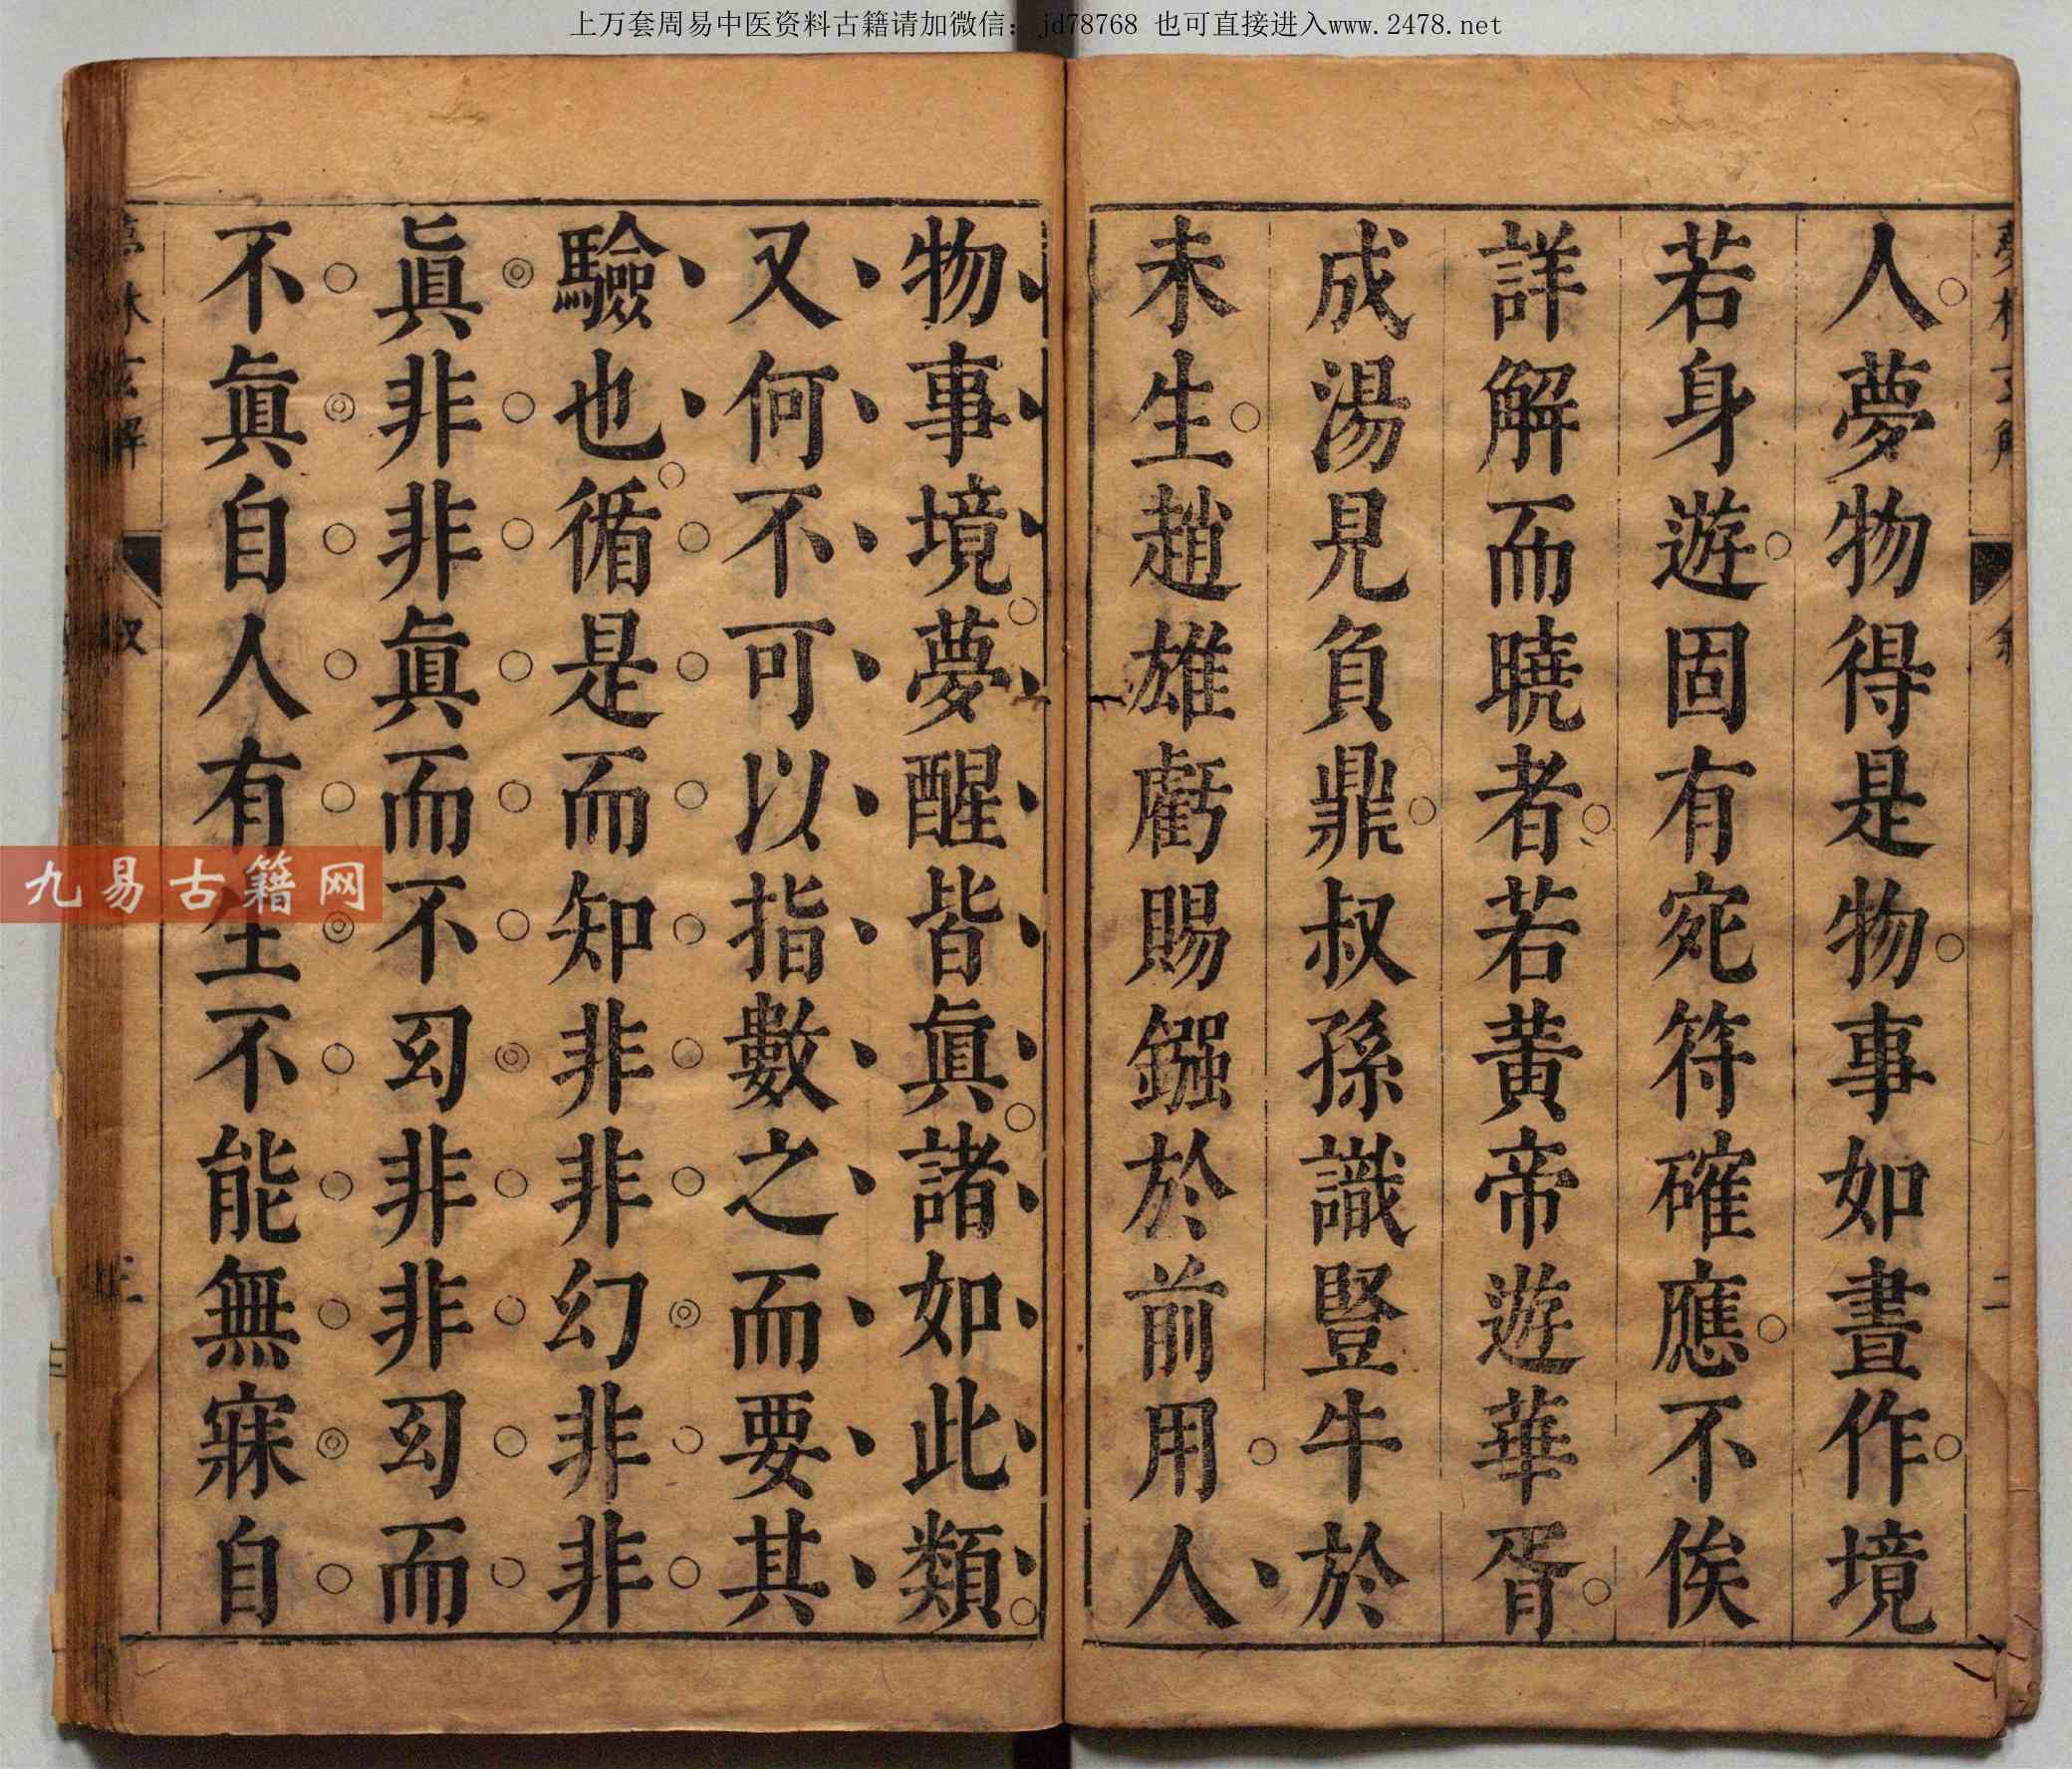 上万套周易中医资料古籍请加微信：jd78768 也可直接进入www.2478.net
人夢物得是物事如晝作境
若身遊固有宛符確應不俟
詳解而曉者若黃帝遊華胥
成湯見負鼎叔孫識豎牛於
未生趙雄虧賜鏹於前用人
物事境夢醒皆眞諸如此類
又何不可以指數之而要其
驗也循是而知非非幻非非
眞非非眞而不㓜非非㓜而
不眞自人有生不能無寐自
叙
九易古籍网